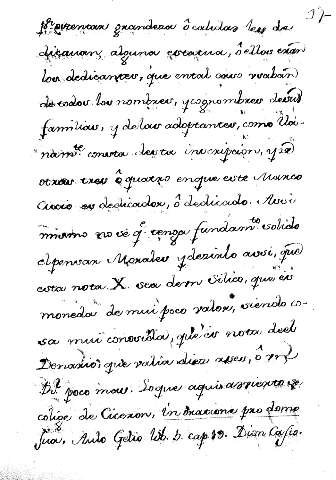 37
pa. ostentar grandeza ô calulas les de
dicauan, alguna estatua, ô ellos eran
los dedicantes, que en tal caso usaban
de todos los nombres, y cognombres de sus
familias, y de los adoptantes, como
namte. consta desta inscripcion, y de
otras tres ô quatro en que este Marco
Cocio es dedicador, ô dedicado. Assi
mismo no sé qe. tenga fundamto. solido
el pensar Morales y dezirlo assi, que
esta nota X. sea de un Silico, que es
moneda de mui poco valor, siendo co-
sa mui conosida, que es nota del
Denario, que valia diez asses, ô un
Rl. poco mas. Lo que aqui assiento se
colige de Ciceron, in oratione pro domo
sua, Aulo Gelio lib. b. cap 19. Dion Casio.